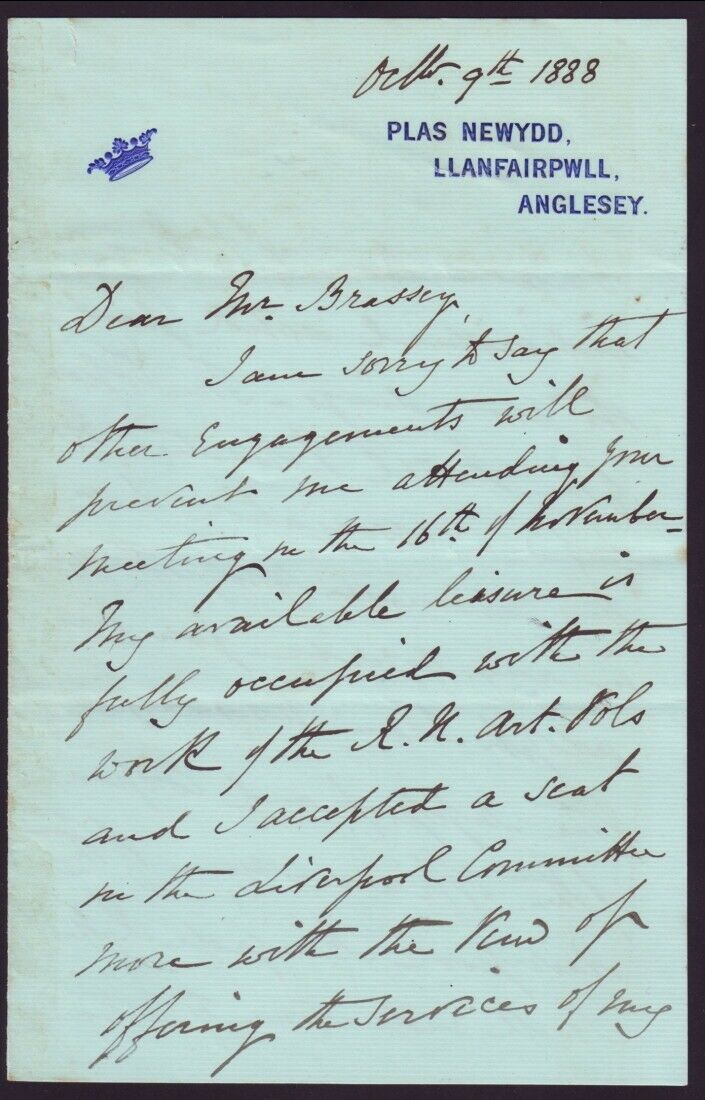 Octbr. 9th 1888
PLAS NEWYDD,
LLANFAIRPWLL,
ANGLESEY.
Dear Mr. Brassey,
I am sorry to say that
other Engagements will
prevent me attending your
meeting on the 16th of November
My available leisure is
fully occupied with the
work of the R. N. Art. Vols
and I accepted a seat
on the Liverpool Committee
more with the view of
offering the services of my